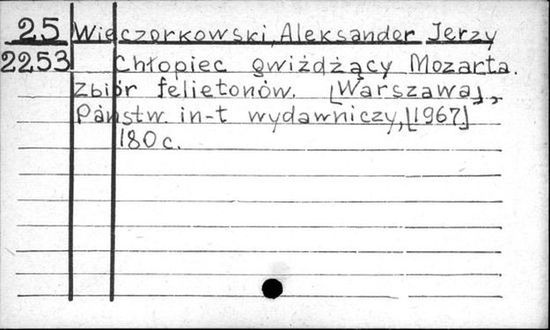 25 Wieczorkowski, Aleksander Jerzy
2253 Chłopiec gwiżdżący Mozarta.
Zbiór felietonów. [Warszawa],
Państw. in-t wydawniczy, [1967]
180 c.